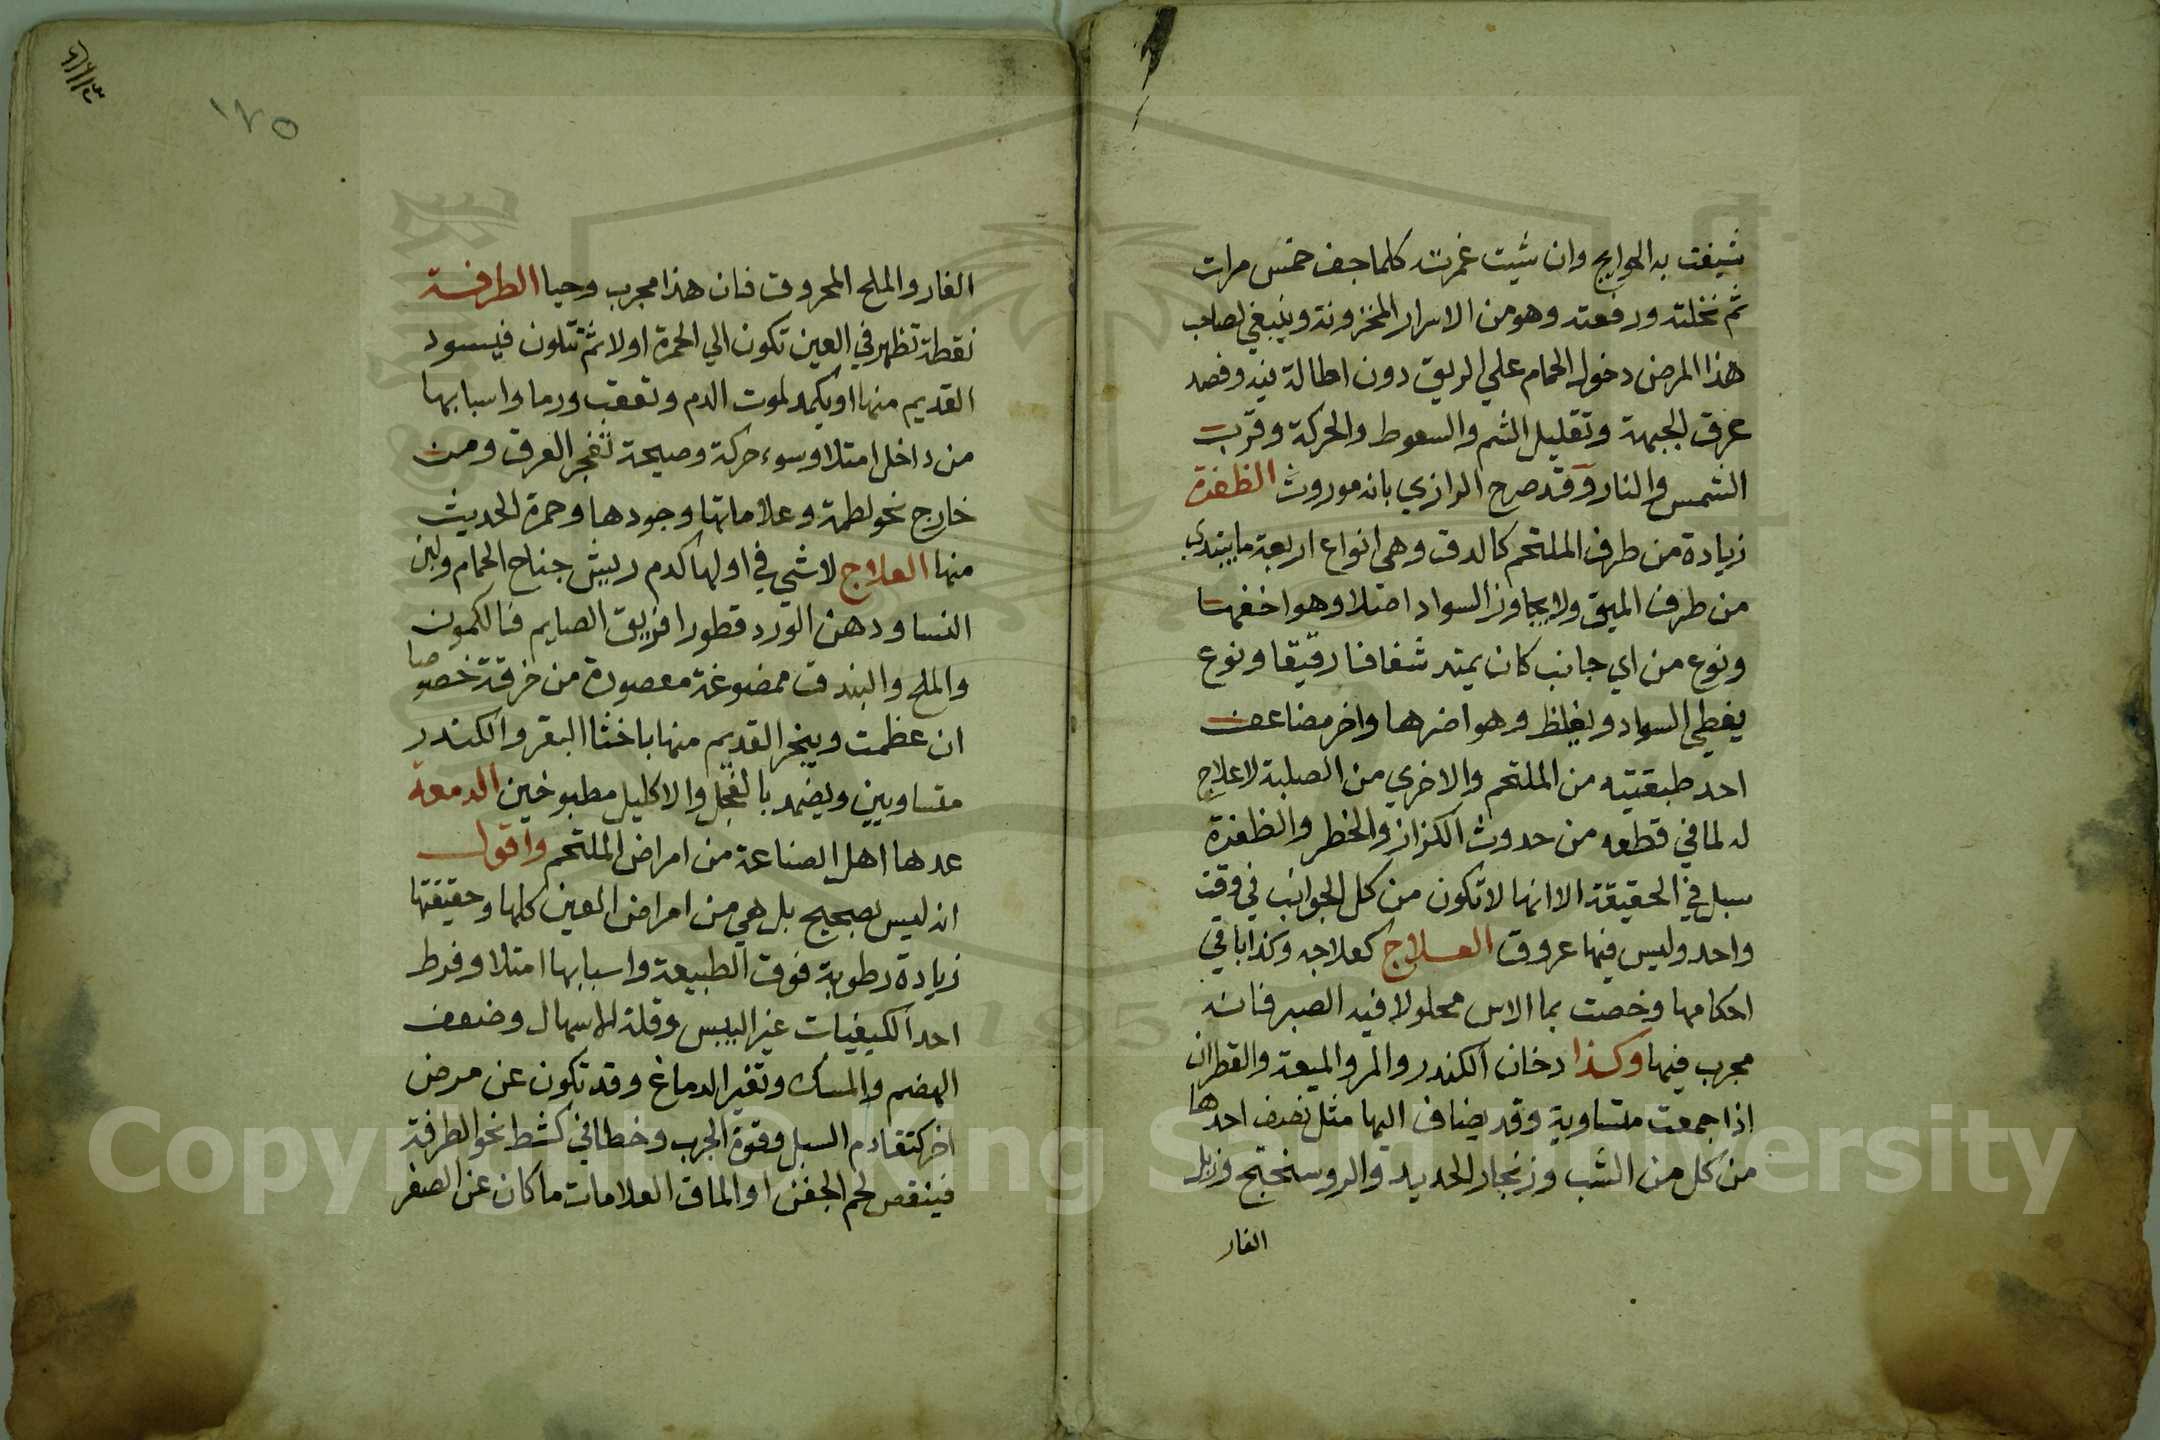 شيفت به الحوايج وان شيت غمرت كلما جف خمس مرات
ثم نخلته ورفعته وهو من الاسرار المخزونة وينبغي لصاحب
هذا المرض دخول الحمام علي الريق دون اطالة فيه وفصد
عرق الجبهة وتقليل الشم والسعوط والحركة وقرب
الشمس والنار وقد صرح الرازي بانه موروث الظفرة
زيادة من طرف الملتحم كالدق وهي انواع اربعة ما يبتدي
من طرف الميق ولا يجاوز السواد اصلا وهو اخفها
ونوع من اي جانب كان يمتد شفافا رقيقا ونوع
يغطي السواد ويغلظ وهو اضرها واخر مضاعف
احد طبقتيه من الملتحم والاخري من الصلبة لاعلاج
له لما في قطعه من حدوث الكزاز والخطر والظفرة
سبل في الحقيقة الا انها لا تكون من كل الجوانب في وقت
واحد وليس فيها عروق العلاج كعلاجه وكذا باقي
احكامها وخصت بما الاس محلولا فيه الصبر فانه
مجرب فيها وكذا دخان الكندر والمر والميعة والقطران
اذا جمعت متساوية وقد يضاف اليها مثل نصف احدها
من كل من الشب وزنجار الحديد والروسختج وزبل
الفار
١٢٥
الفار والملح المحروق فان هذا مجرب وحيا الطرفة
نقطة تظهر في العين تكون الي الحمرة اولا ثم تتلون فيسود
القديم منها او يكمد لموت الدم وتعقب ورما واسبابها
من داخل امتلا وسوء حركة وصيحة تفجر العرق ومن
خارج نحو لطمة وعلاماتها وجودها وحمرة الحديث
منها العلاج لا شي في اولها كدم ريش جناح الحمام ولبن
النسا ودهن الورد قطورا فريق الصايم فالكمون
والملح والبندق ممضوغة معصورة من خرقة خصوصا
ان عظمت ويبخر القديم منها باخثا البقر والكندر
متساويين ويضمد بالفجل والاكليل مطبوخين الدمعة
عدها اهل الصناعة من امراض الملتحم واقول
انه ليس بصحيح بل هي من امراض العين كلها وحقيقتها
زيادة رطوبة فوق الطبيعة واسبابها امتلا وفرط
احد الكيفيات غير اليبس وقلة الاسهال وضعف
الهضم والمسك وتغير الدماغ وقد تكون عن مرض
اخر كتقادم السبل وقوة الجرب وخطا في كشط نحو الطرفة
فينقص لحم الجفن او الماق العلامات ما كان عن الصفر
Copyright © King Saud University